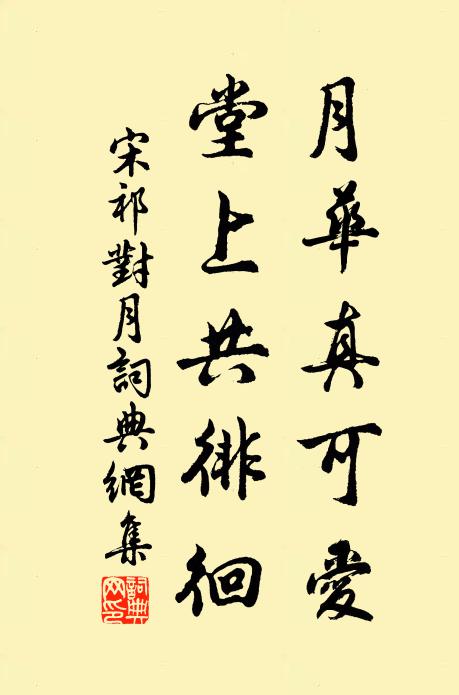 月華真可愛
堂上共徘徊
宋祁對月詞典網集
詞典網印